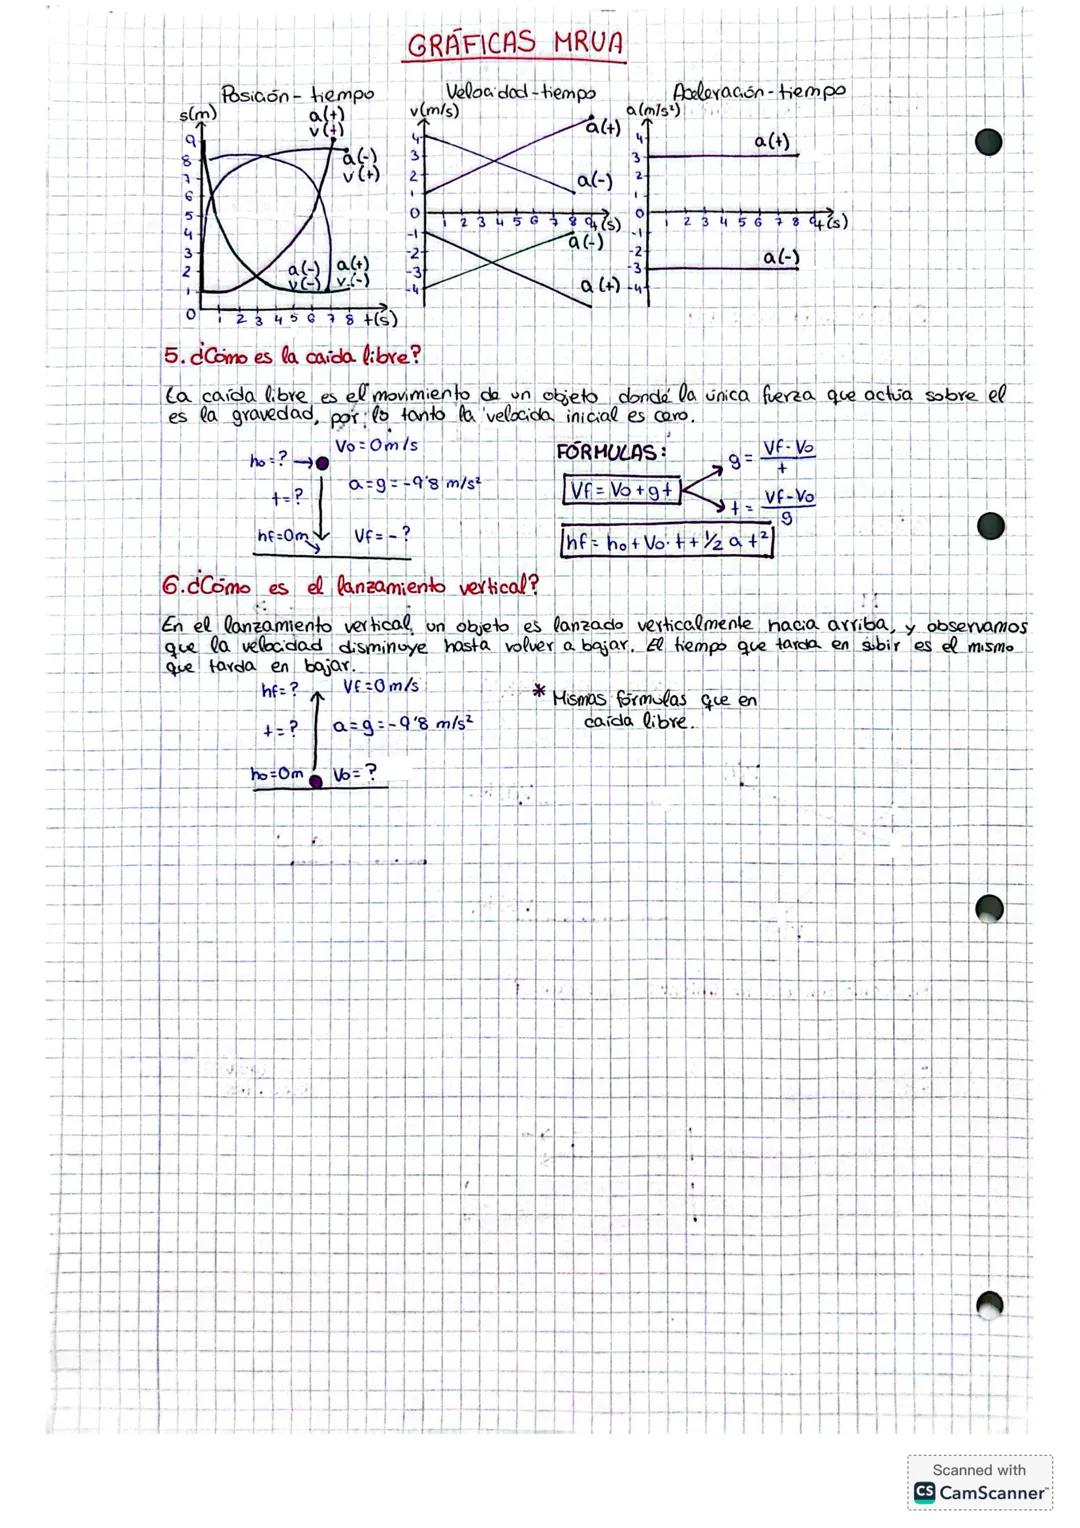 GRÁFICAS MRUA
Posición - tiempo
s(m)
a(+)
v(+)
a(-)
v(+)
a(-)
v(-)
a(+)
v(-)
9
8
7
6
5
4
3
2
1
0
1 2 3 4 5 6 7 8 t(s)
Velocidad-tiempo
v(m/s)
a(+)
a(-)
a(-)
a(+)
4
3
2
1
0
-1
-2
-3
-4
1 2 3 4 5 6 7 8 9 t(s)
Aceleración-tiempo
a(m/s²)
a(+)
a(-)
4
3
2
1
0
-1
-2
-3
-4
1 2 3 4 5 6 7 8 9 t(s)
5. ¿Cómo es la caída libre?
La caída libre es el movimiento de un objeto dondé la única fuerza que actúa sobre el
es la gravedad, por lo tanto la velocida inicial es cero.
ho=?
Vo=0m/s
t=?
a=g=-9'8 m/s²
hf=0m
Vf=-?
FÓRMULAS:
Vf=Vo+gt
g= Vf-Vo
t
t= Vf-Vo
g
hf= ho+Vo·t+½ a t²
6. ¿Cómo es el lanzamiento vertical?
En el lanzamiento vertical, un objeto es lanzado verticalmente hacia arriba, y observamos
que la velocidad disminuye hasta volver a bajar. El tiempo que tarda en subir es el mismo
que tarda en bajar.
hf=?
Vf=0m/s
t=?
a=g=-9'8 m/s²
ho=0m
Vo=?
* Mismas fórmulas que en
caída libre.
Scanned with
CS CamScanner